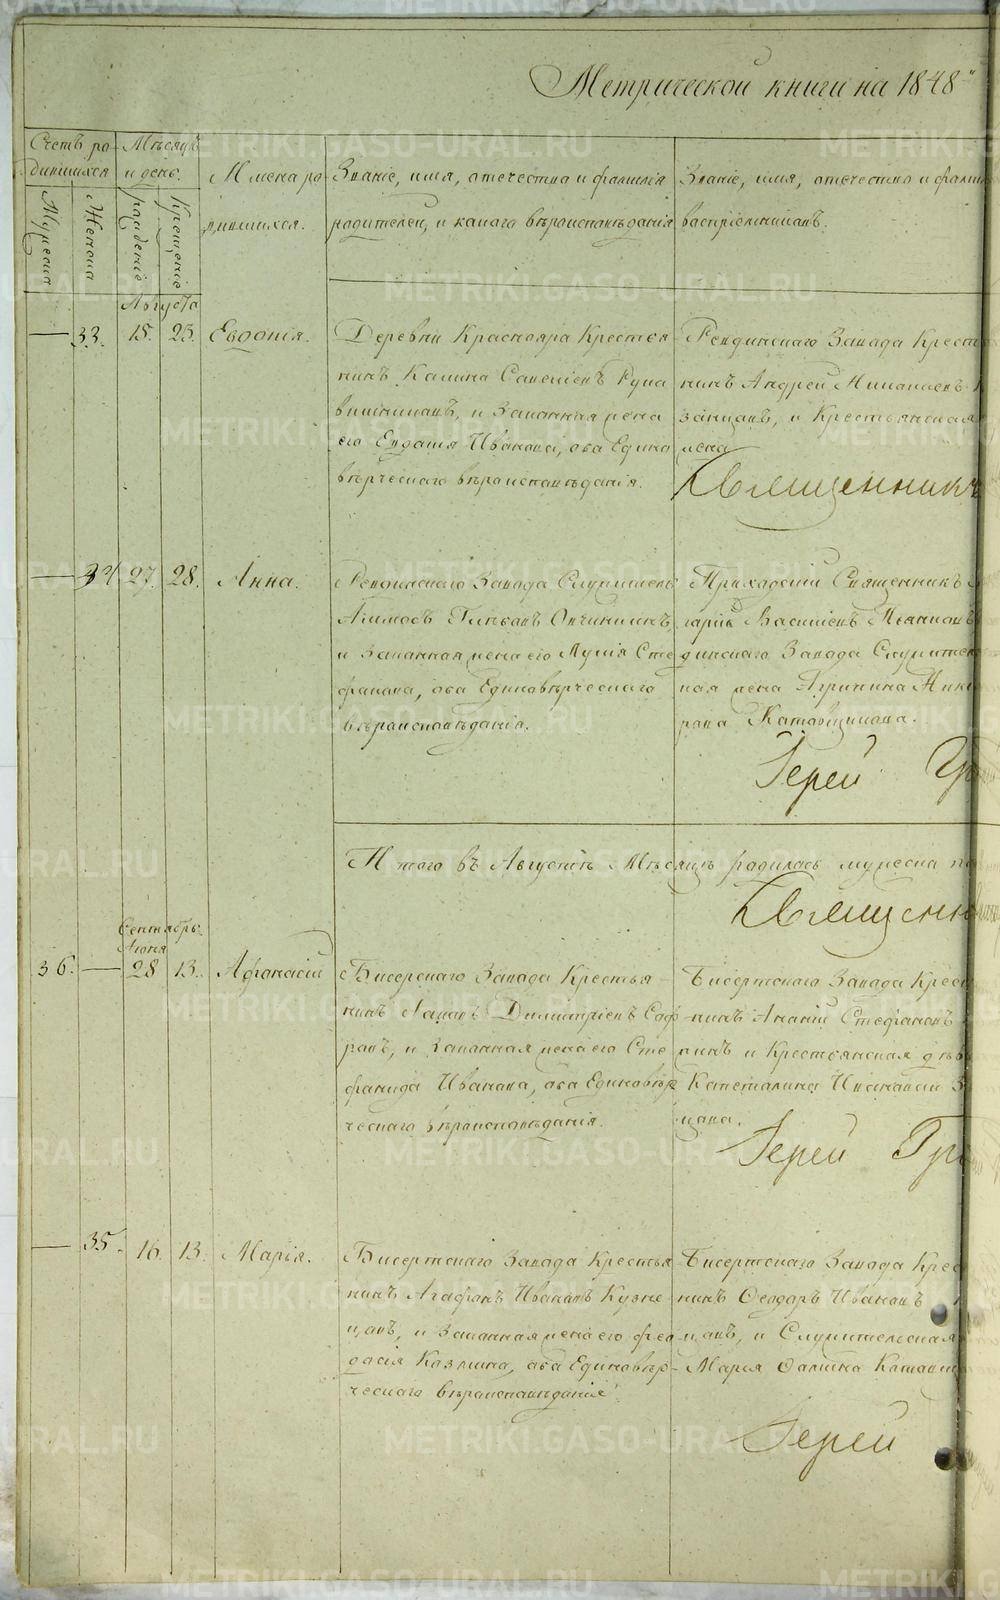 Метрической книги на 1848
Счетъ ро-
дившихся
Мужеска
Женска
Мѣсяцъ
и день.
рожденіе
Крещеніе
Имена ро-
дившихся.
Званіе, имя, отечество и фамилія
родителей, и какого вѣроисповѣданія
Званіе, имя, отечество и фамил
воспріемниковъ.
Августа
33. 15. 25. Евдокія.
Деревни Краснояра Крестья
нинъ Калина Савельевъ
вишниковъ, и Законная жена
его Евдокія Иванова, оба Едино
вѣрческаго вѣроисповѣданія.
Ревдинскаго Завода Крест
нинъ Андрей Михайловъ
занцовъ, и Крестьянская
жена
Священникъ
34 27. 28. Анна.
Ревдинскаго Завода Служитель
Овчинниковъ,
и Законная жена его Сте
фанова, оба Единовѣрческаго
вѣроисповѣданія.
Приходскій Священникъ
Василіевъ
динскаго Завода Служитель
ная жена Агрипина Ники
рова Катовщикова.
Іерей Гр
Итого въ Августѣ Мѣсяцѣ родилось мужеска по
Священн
Сентябрь
Іюня
36. 28 13. Афанасій
Бисерскаго Завода Крестья
нинъ Димитріевъ Соф
роновъ, и Законная жена его Сте
фанида Иванова, оба Единовѣр
ческаго вѣроисповѣданія.
Бисертскаго Завода Крест
нинъ Ананій Стефановъ
нинъ и Крестьянская дѣв
Капеталина Ивановой
цова.
Іерей Гри
35. 16. 13. Марія.
Бисертскаго Завода Крестья
нинъ Агафонъ Ивановъ Кузне-
цовъ, и Законная жена его Фео-
досія Козмина, оба Единовѣр-
ческаго вѣроисповѣданія
Бисертскаго Завода Крес
нинъ Ѳеодоръ Ивановъ
цовъ, и Служительская
Марія
Іерей
METRIKI.GASO-URAL.RU